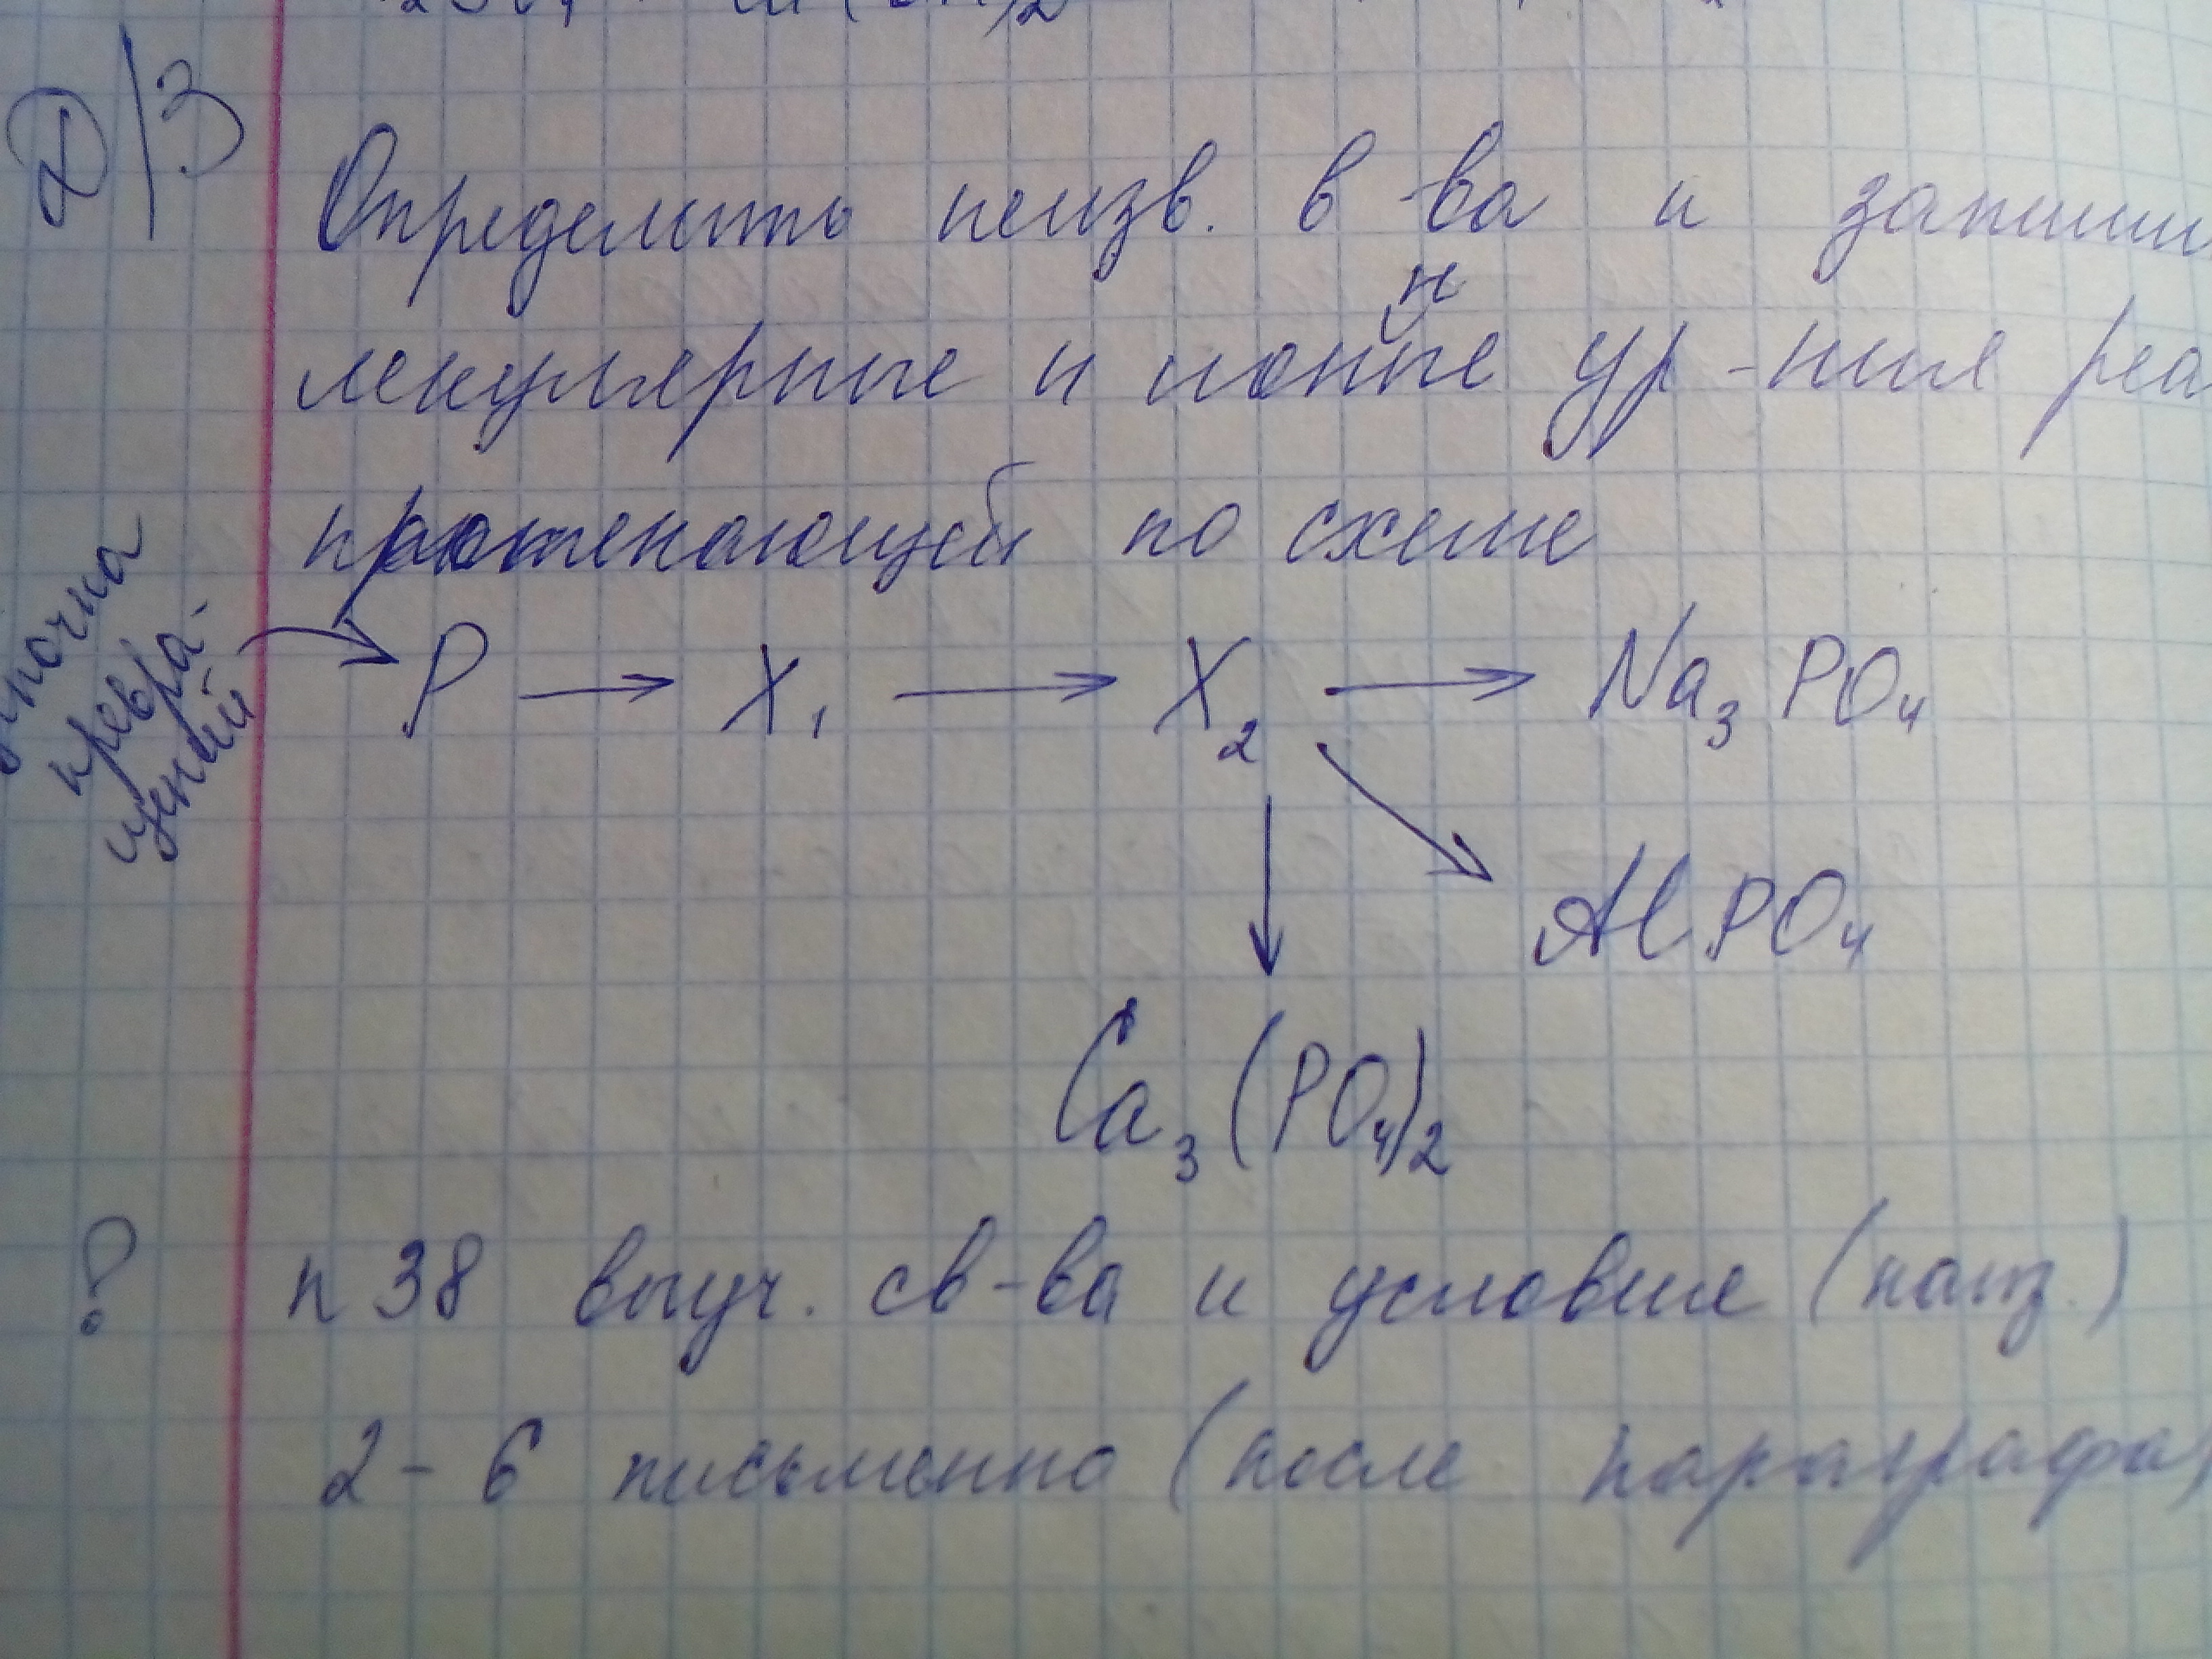 Д/З
Определить неизв. в-ва и запиши
лекулярные и ионные ур-ния реа
протекающей по схеме
превра-
щений
P → X₁ → X₂ → Na₃PO₄
AlPO₄
Ca₃(PO₄)₂
? п 38 выуч. св-ва и условия (наиз.)
2-6 письменно (после параграфа)